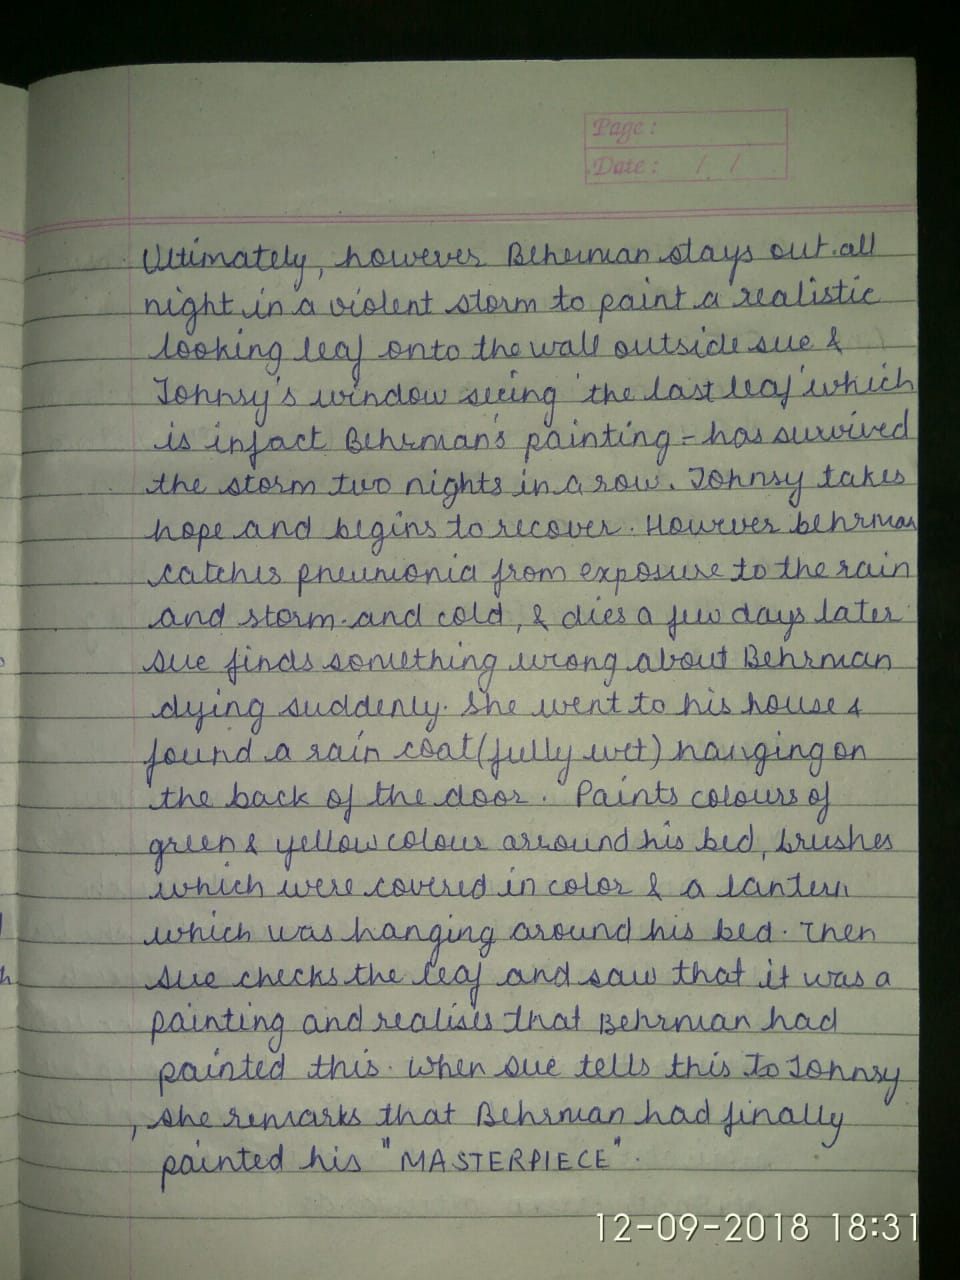 Page :
Date : / /
Ultimately, however Behrman stays out all
night in a violent storm to paint a realistic
looking leaf onto the wall outside sue &
Johnsy's window seeing 'the last leaf' which
is infact Behrman's painting - has survived
the storm two nights in a row. Johnsy takes
hope and begins to recover. However behrman
catches pneumonia from exposure to the rain
and storm and cold, & dies a few days later
sue finds something wrong about Behrman
dying suddenly. She went to his house &
found a rain coat (fully wet) hanging on
the back of the door. Paints colours of
green & yellow colour arround his bed, brushes
which were covered in color & a lantern
which was hanging around his bed. Then
sue checks the leaf and saw that it was a
painting and realises that Behrman had
painted this. When sue tells this to Johnsy
, she remarks that Behrman had finally
painted his "MASTERPIECE".
12-09-2018 18:31